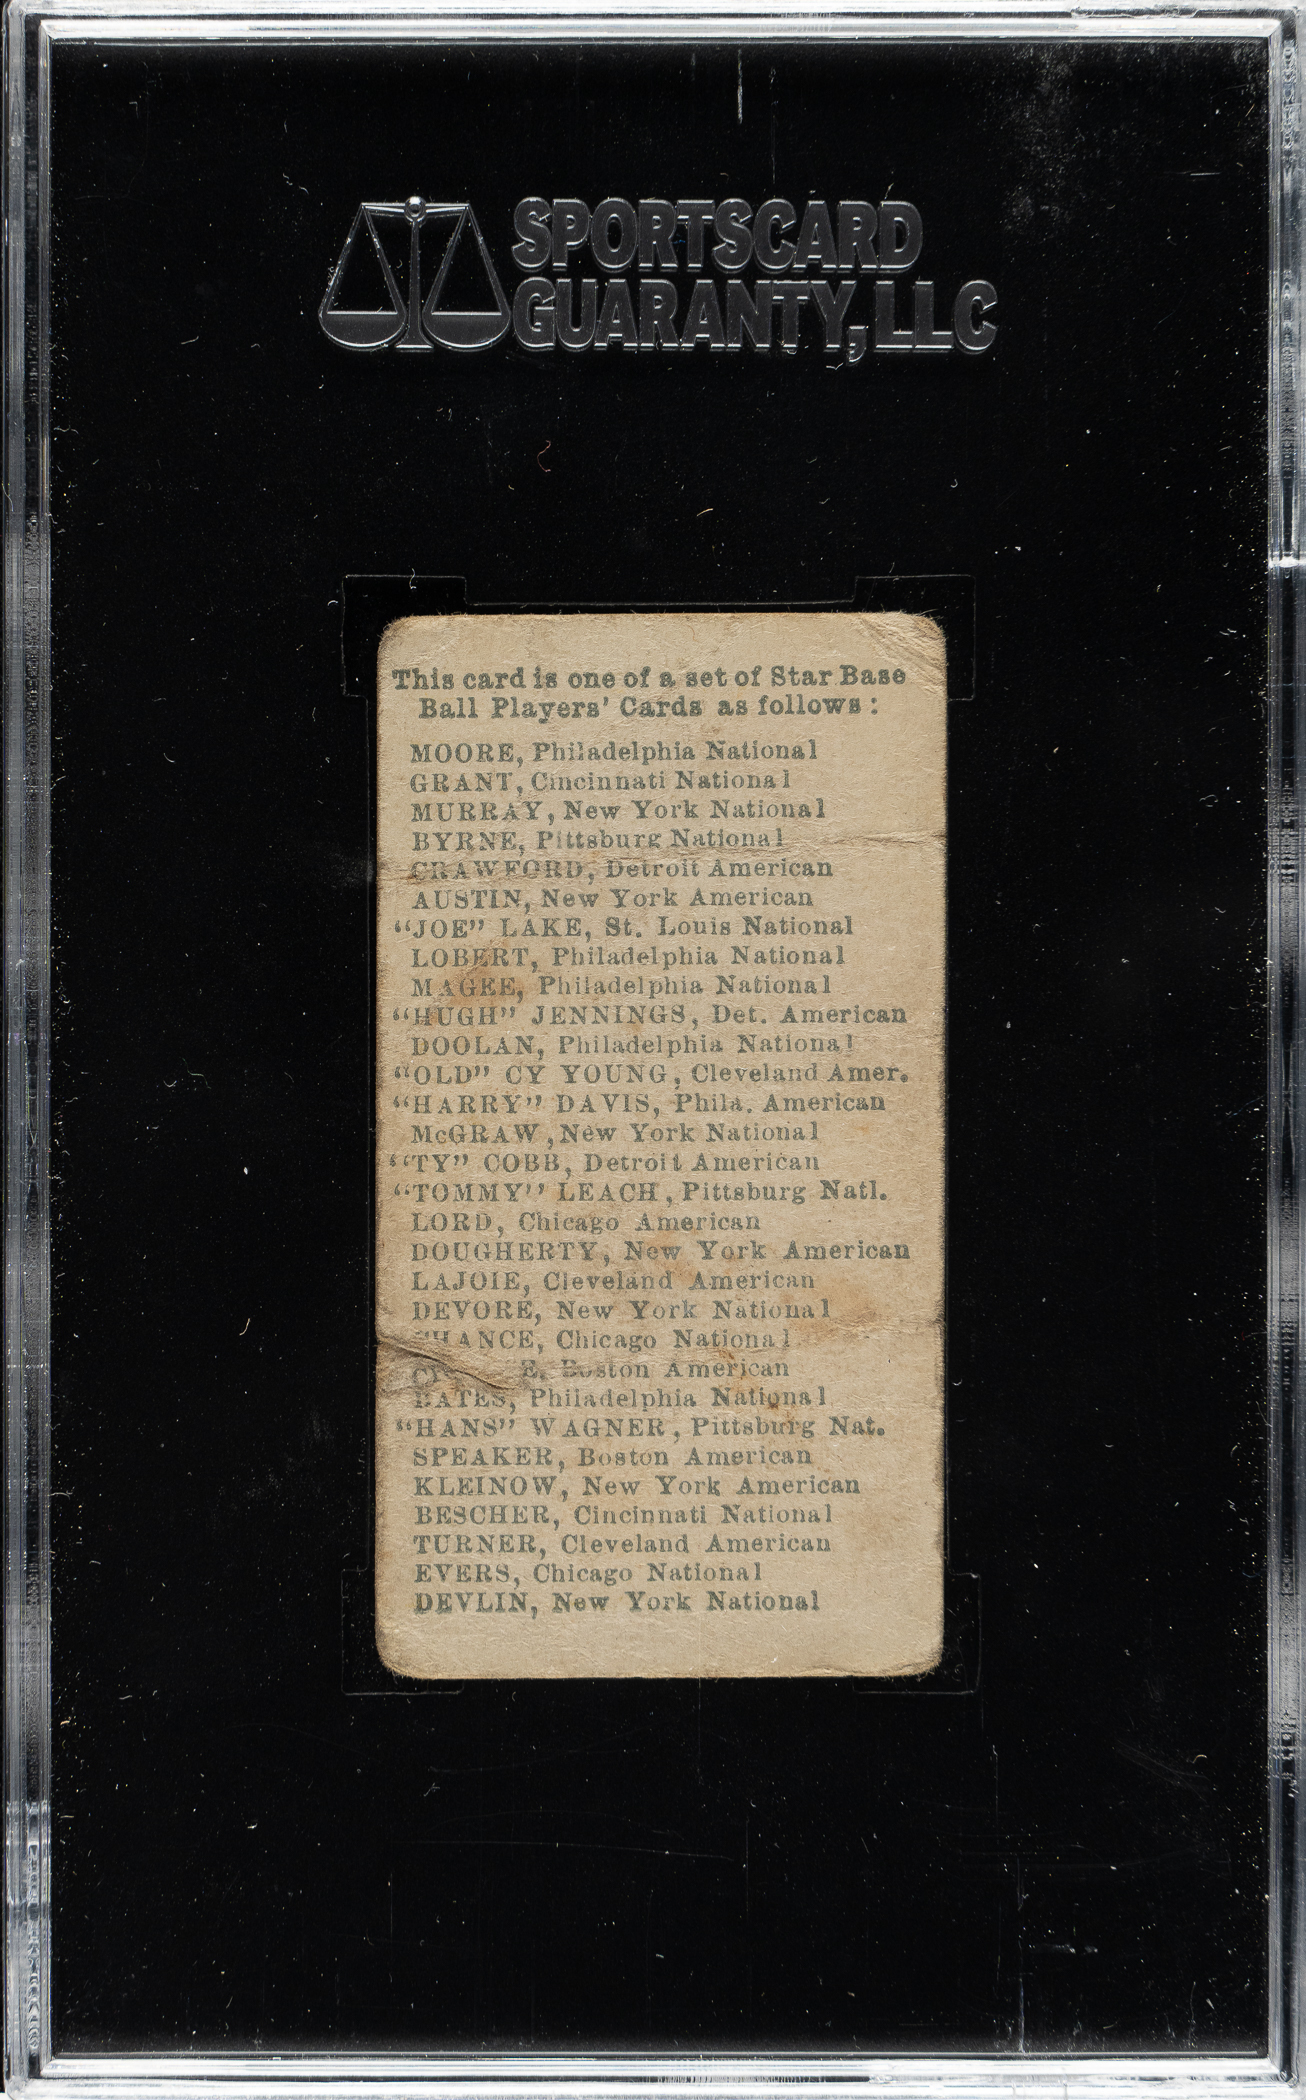 SPORTSCARD
GUARANTY, LLC
This card is one of a set of Star Base
Ball Players' Cards as follows:
MOORE, Philadelphia National
GRANT, Cincinnati National
MURRAY, New York National
BYRNE, Pittsburg National
CRAWFORD, Detroit American
AUSTIN, New York American
"JOE" LAKE, St. Louis National
LOBERT, Philadelphia National
MAGEE, Philadelphia National
"HUGH" JENNINGS, Det. American
DOOLAN, Philadelphia National
"OLD" CY YOUNG, Cleveland Amer.
"HARRY" DAVIS, Phila. American
McGRAW, New York National
"TY" COBB, Detroit American
"TOMMY" LEACH, Pittsburg Natl.
LORD, Chicago American
DOUGHERTY, New York American
LAJOIE, Cleveland American
DEVORE, New York National
CHANCE, Chicago National
Boston American
BATES, Philadelphia National
"HANS" WAGNER, Pittsburg Nat.
SPEAKER, Boston American
KLEINOW, New York American
BESCHER, Cincinnati National
TURNER, Cleveland American
EVERS, Chicago National
DEVLIN, New York National